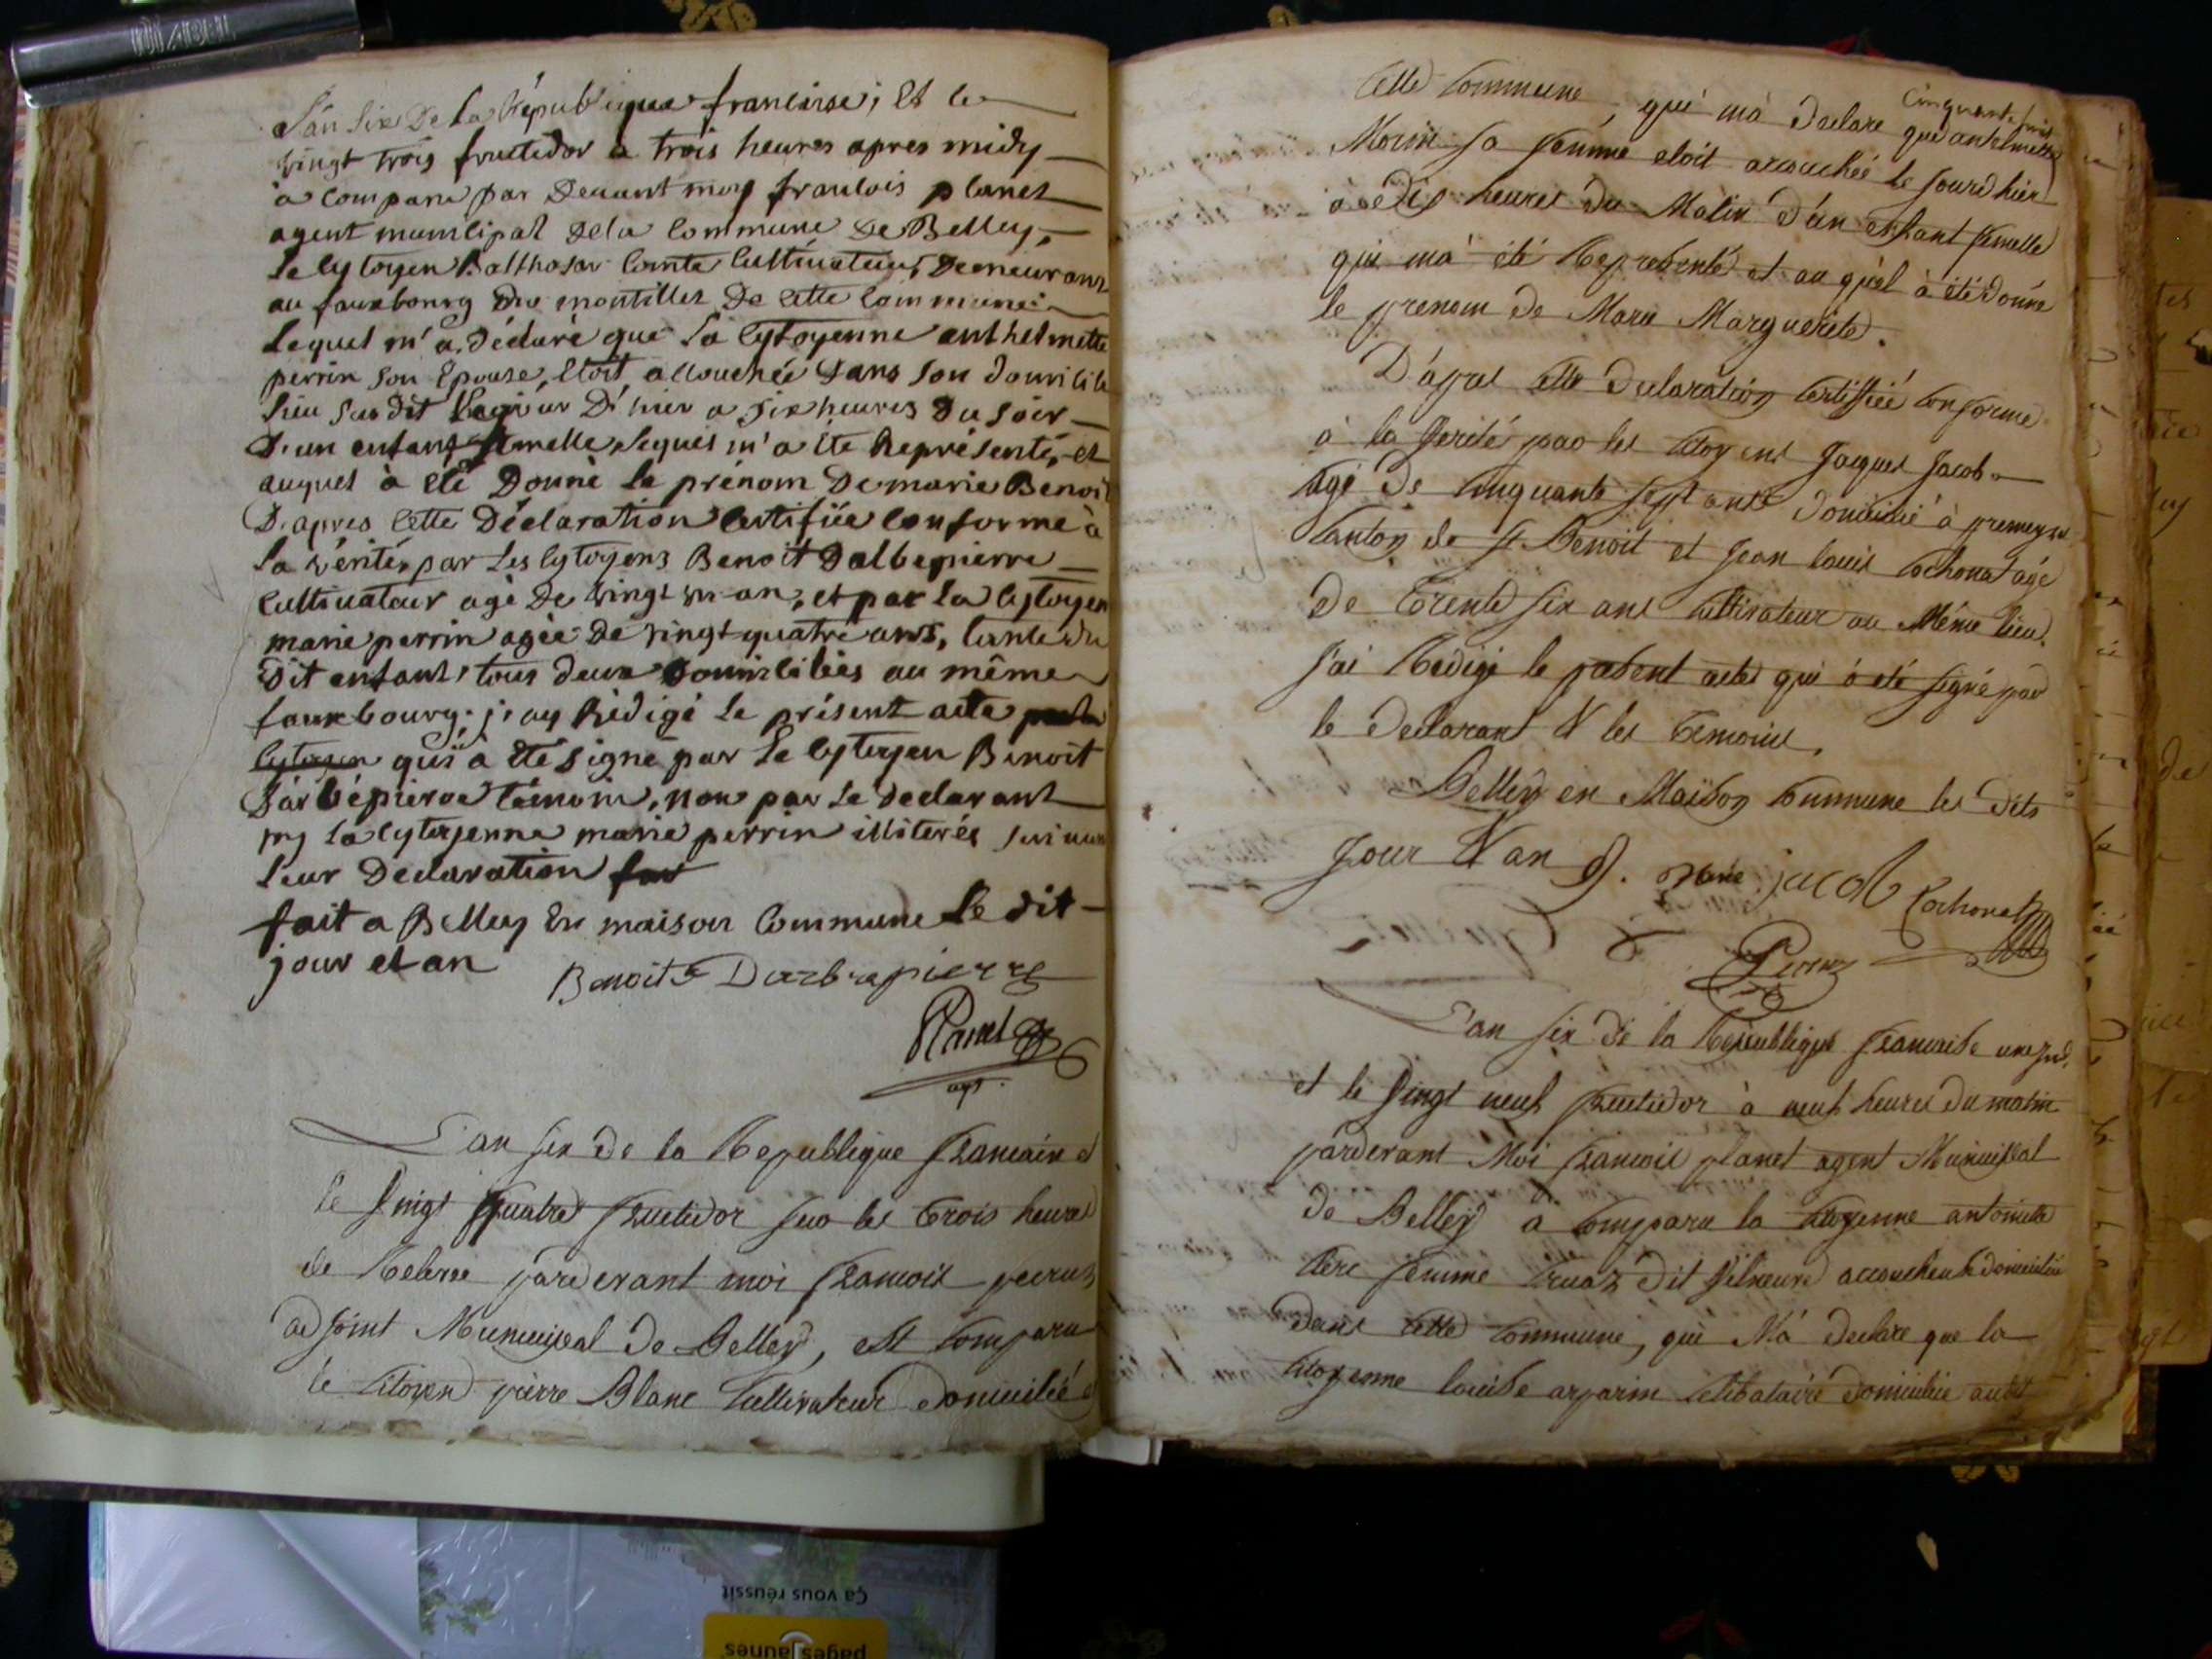 L'an Six De la République francaise; Et le
vingt trois fructidor a trois heures apres midy
à comparu par Devant moy francois planet
agent municipal De la commune De Belley,
le cytoyen Balthasar Comte Cultivateur, Demeurant
au fauxbourg du montillet De cette commune
Lequel m'a déclaré que La Cytoyenne anthelmette
perrin son Epouse, Etoit accouchée Dans son domicile
lieu susdit D'hier a six heures Du soir
D'un enfant femelle, Lequel m'a été Représenté, et
auquel à été Donné le prénom De marie Benoit
D'apres Cette Déclaration Certifiée Conforme à
La vérité par Les Cytoyens Benoit Dalbepierre
Cultivateur agé De vingt un an, et par La Cytoyen
marie perrin agée De vingt quatre ans, tante du
Dit enfant, tous deux Domiciliés au même
fauxbourg; j'ay Rédigé Le présent acte
Cytoyen qui a été signé par Le Cytoyen Benoit
Darbépierre témoin, non par Le Declarant
ny La Cytoyenne marie perrin illiterés suivant
leur Declaration
fait a Belley En maison Commune Le dit
jour et an
Benoit Darbepierre
Planet
agt.
L'an six de la Republique francaise et
le vingt quatre fructidor sur les trois heures
de Relevee pardevant moi francois perruz
adjoint Municipal de Belley, est comparu
le Citoyen pierre Blanc Cultivateur domicilié
Cette Commune, qui m'a declare que antelmette
Cinquante huit
Morin sa femme etoit accouchée le jour d'hier
à dix heures du Matin d'un enfant femelle
qui m'a été Representé et au quel à été donné
le prenom de Marie Marguerite.
D'apres cette Declaration certiffiée conforme
à la verité par les citoyens Jacques Jacob
agé de cinquante sept ans domicilié à premeyzel
Canton de St Benoit et Jean louis Cochonat agé
de trente six ans cultivateur au Même lieu.
J'ai Redigé le present acte qui à été signé par
le Declarant & les temoins.
Belley en Maison Commune les dits
Jour & an
jacob Cochonat
Perruz
L'an six de la Republique francaise une ind.
et le vingt neuf fructidor à neuf heures du matin
pardevant Moi francois planet agent Municipal
de Belley à comparu la citoyenne antoinette
femme dit accoucheuse domiciliée
dans cette commune, qui M'a declare que la
citoyenne louise arparin celibataire domiciliée audit
Ça vous réussit
pagesJaunes